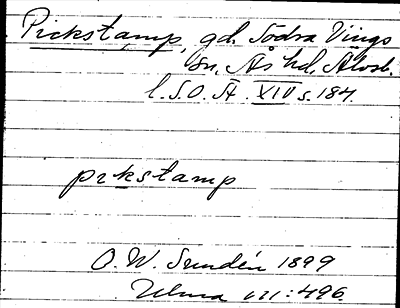 Pickstamp, gd. Södra Vings
sn, Ås hd, Älvsb.
l. S.O.Ä. XIV s. 184.
pɪkstamp
O. W. Sundén 1899
Ulma 111:496.